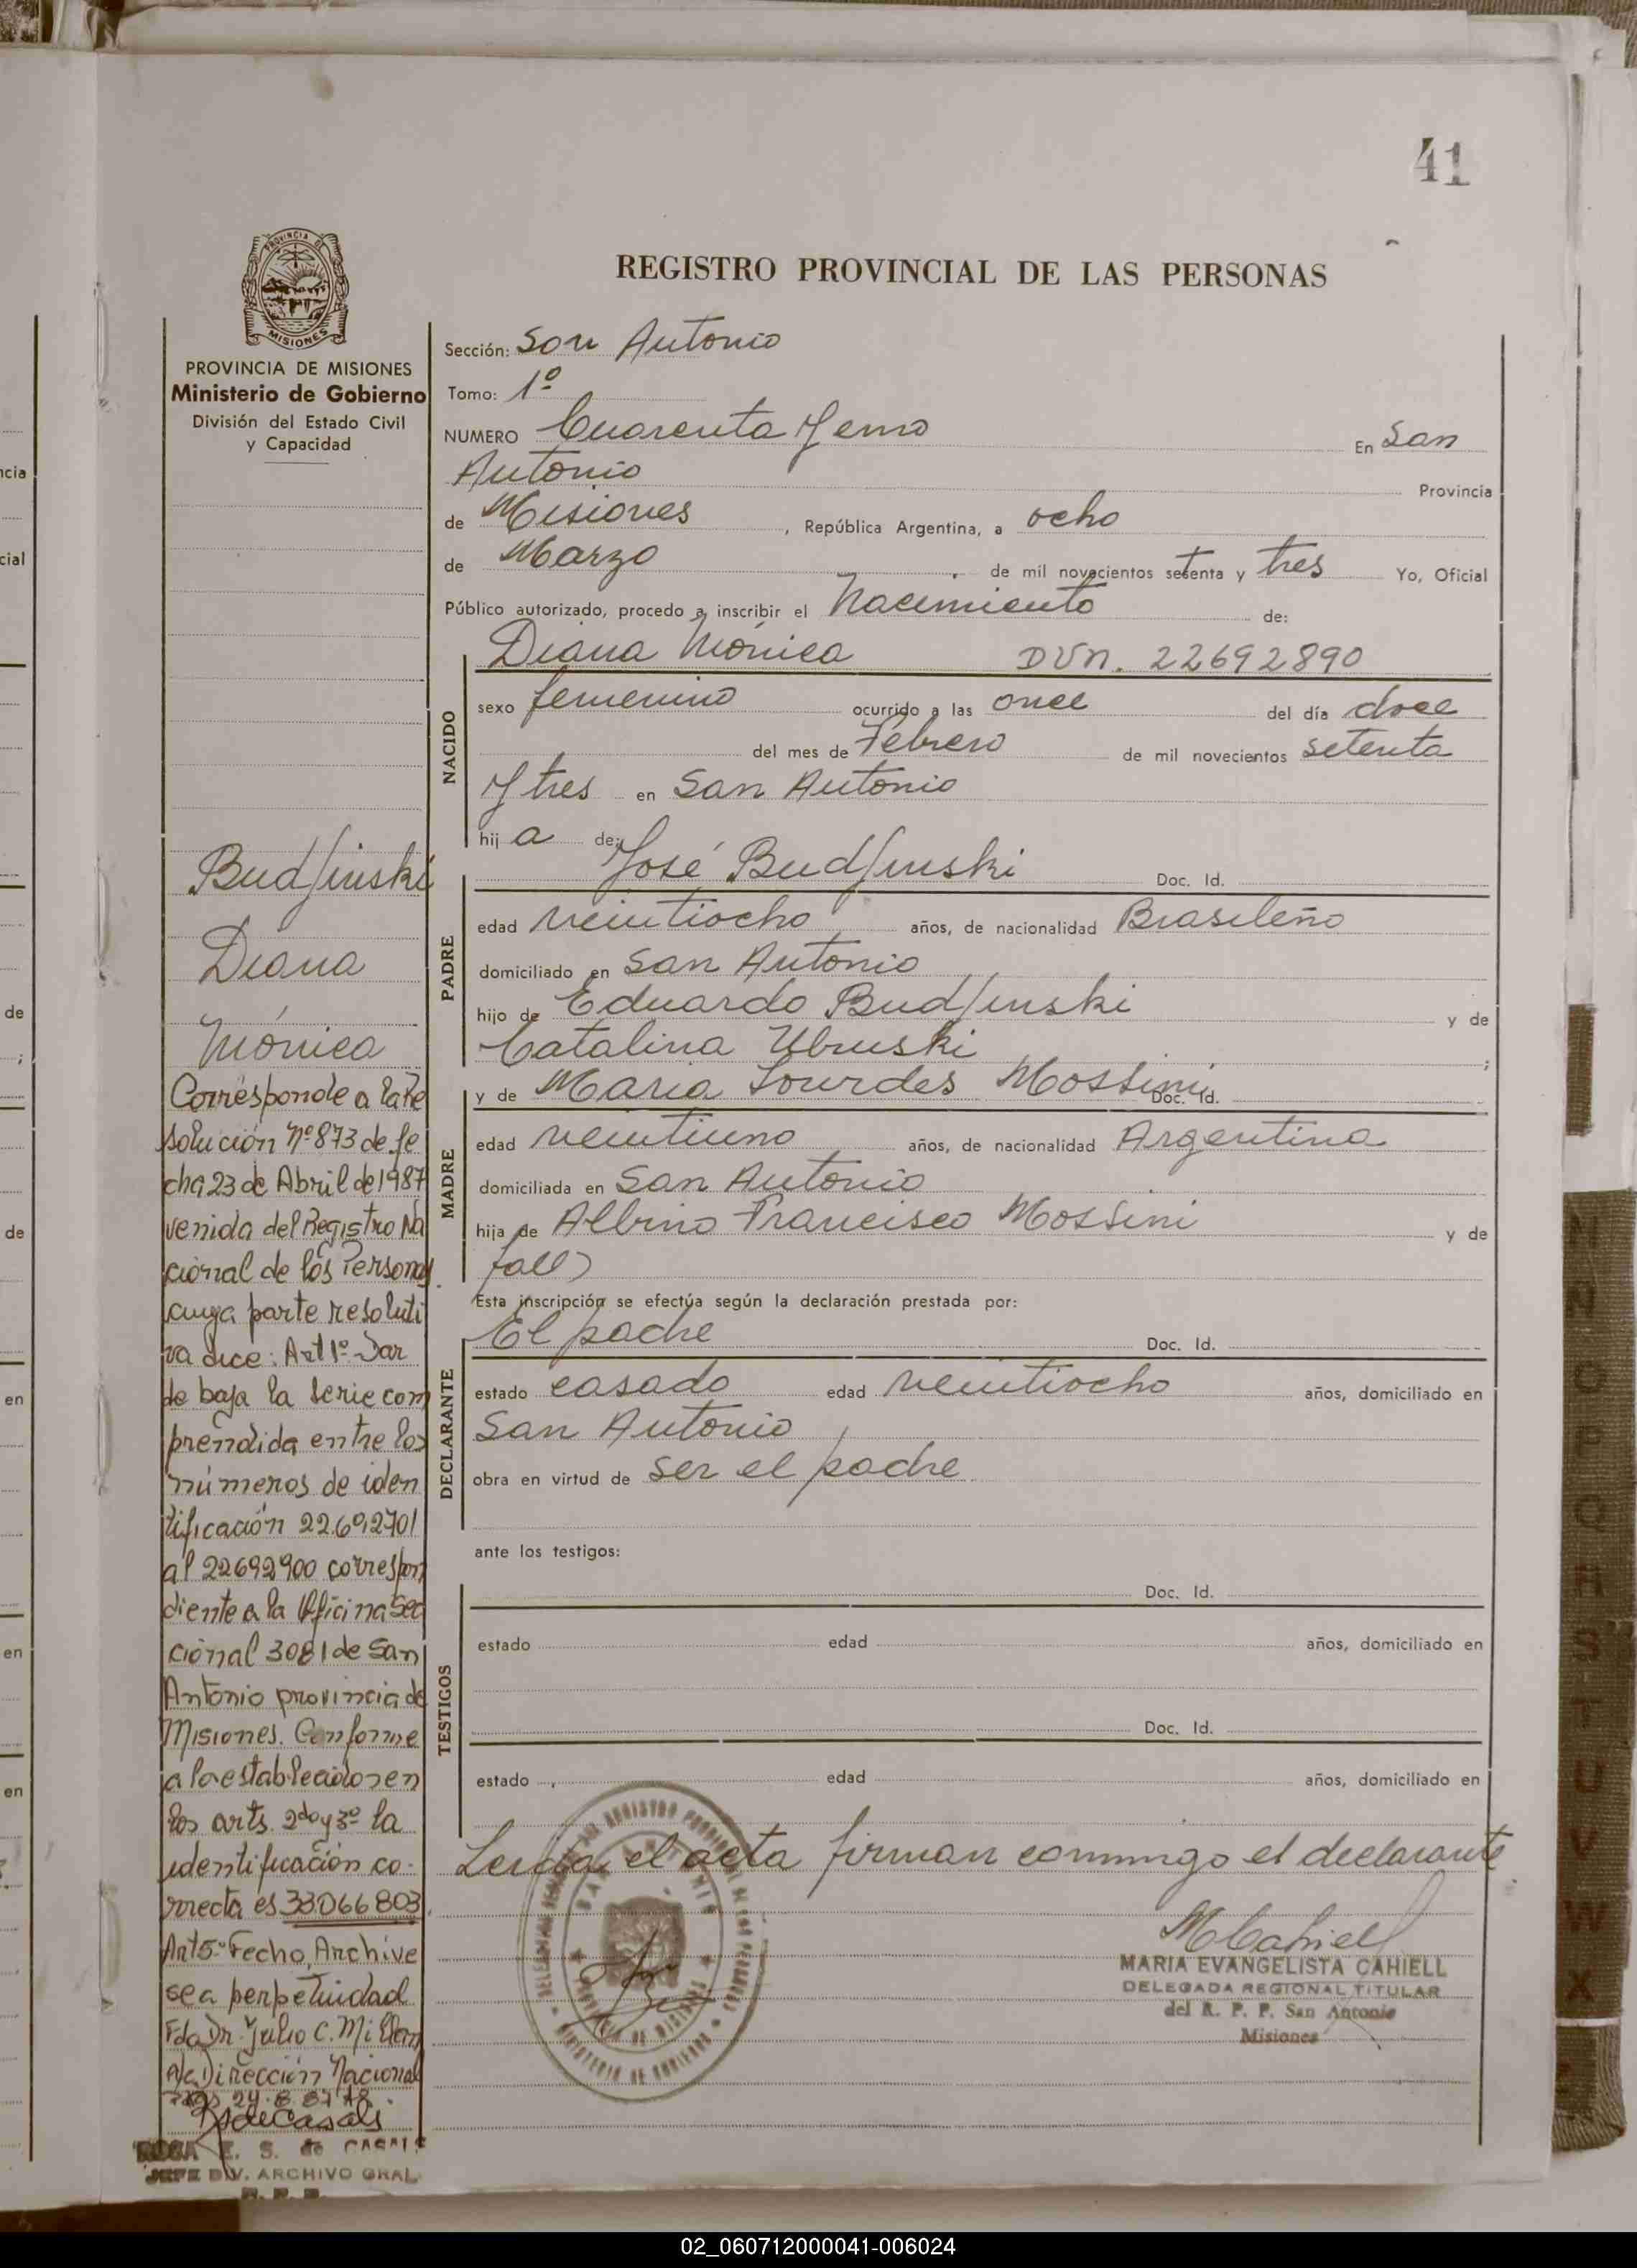 41
PROVINCIA DE
MISIONES
REGISTRO PROVINCIAL DE LAS PERSONAS
PROVINCIA DE MISIONES
Ministerio de Gobierno
División del Estado Civil
y Capacidad
Sección: San Antonio
Tomo: 1º
NUMERO Cuarenta y uno En San
Antonio Provincia
de Misiones, República Argentina, a ocho
de Marzo, de mil novecientos setenta y tres Yo, Oficial
Público autorizado, procedo a inscribir el Nacimiento de:
Diana Mónica DUN. 22692890
NACIDO
sexo femenino ocurrido a las once del día doce
del mes de Febrero de mil novecientos setenta
y tres en San Antonio
hij a de:
José Budzinski Doc. Id.
PADRE
edad veintiocho años, de nacionalidad Brasileño
domiciliado en San Antonio
hijo de Eduardo Budzinski y de
Catalina Ubruski ;
y de Maria Lourdes Mossini Doc. Id.
MADRE
edad veintiuno años, de nacionalidad Argentina
domiciliada en San Antonio
hija de Albino Francisco Mossini y de
fall)
Esta inscripción se efectúa según la declaración prestada por:
El padre Doc. Id.
DECLARANTE
estado casado edad veintiocho años, domiciliado en
San Antonio
obra en virtud de ser el padre
ante los testigos:
Doc. Id.
TESTIGOS
estado edad años, domiciliado en
Doc. Id.
estado edad años, domiciliado en
Leida el acta firman conmigo el declarante
MCahiell
MARIA EVANGELISTA CAHIELL
DELEGADA REGIONAL TITULAR
del R. P. P. San Antonio
Misiones
Budzinski
Diana
Mónica
Corresponde a la Re
solución Nº 873 de fe
cha 23 de Abril de 1987
venida del Registro Na
cional de las Personas
cuya parte resoluti
va dice: Art 1º Dar
de baja la serie com
prendida entre los
números de iden
tificación 22.692701
al 22692900 correspon
diente a la Oficina Sec
cional 3081 de San
Antonio provincia de
Misiones. Conforme
a lo establecido en
los arts. 2do y 3º la
identificación co-
rrecta es 33.066803
Art 5º Fecho, Archive
se a perpetuidad
Fdo Dr. Julio C.
A/c Dirección Nacional
RSdeCasals
ROSA E. S. de CASALS
JEFE DIV. ARCHIVO GRAL.
R. P. P.
02_060712000041-006024